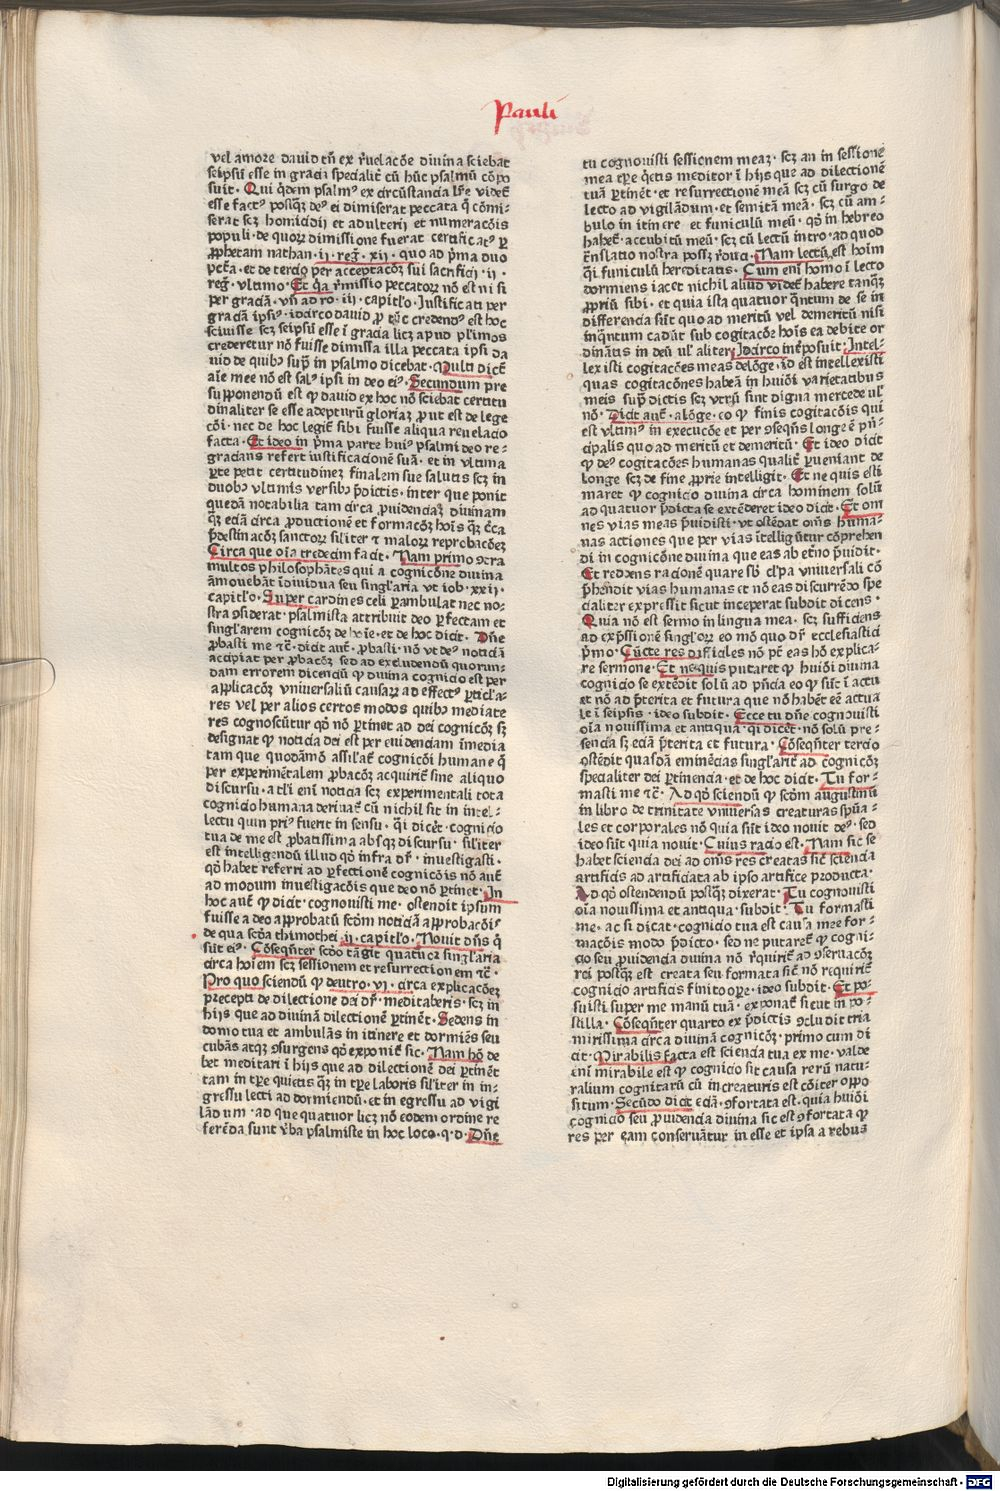 Pauli
vel amore dauid tñ ex r̃uelacõe diuina sciebat
seipsũ esse in gracia specialit̃ cũ hũc psalmũ cõpo
suit· Qui q̃dem psalmꝰ ex circũstancia lr̃e videt̃
esse factꝰ postqȝ deꝰ ei dimiserat peccata q̃ cõmi-
serat scȝ homicidij et adulterij et numeracõis
populi· de quoꝝ dimissione fuerat certificatꝰ ꝑ
ꝓphetam nathan ·ij· reg̃· xij· quo ad p̃ma duo
pctã· et de tercio per acceptacõȝ sui sacrificij ·ij·
reg̃· vltimo· Et q̃a r̃missio peccatoꝝ nõ est ni si
per graciã· vñ ad ro· iij· capitl̃o· Justificati per
graciã ipsiꝰ· idarco dauid ꝓ tũc credendꝰ est hoc
sciuisse scȝ seipsũ esse ĩ gracia licȝ apud pl̃imos
crederetur nõ fuisse dimissa illa peccata ipsi da
uid de quibꝰ sup̃ in psalmo dicebat· Multi dicũt
aĩe mee nõ est salꝰ ipsi in deo eiꝰ· Secundum pre
supponendũ est ꝙ dauid ex hoc nõ sciebat certitu
dinaliter se esse adepturũ gloriaȝ ꝓut est de lege
cõi· nec de hoc legit̃ sibi fuisse aliqua reuelacio
facta· Et ideo in p̃ma parte huiꝰ psalmi deo re-
gracians refert iustificacionẽ suã· et in vltima
ꝑte petit certitudineȝ finalem sue salutis scȝ in
duobꝰ vltimis versibꝰ p̃dictis· inter que ponit
quedã notabilia tam circa ꝓuidenciaȝ diuinam
qȝ eciã circa ꝓductionẽ et formacõȝ hoĩs qȝ c̃ca
p̃destinacõȝ sanctoꝝ siĩliter ⁊ maloꝝ reprobacõeȝ
Circa que oĩa tredecim facit· Nam primo ꝯtra
multos philosophãtes qui a cognicõne diuina
ãmouebãt ĩdiuidua seu singl̃aria vt iob· xxij·
capitl̃o· Super cardines celi ꝑambulat nec no-
stra ꝯsiderat· psalmista attribuit deo ꝑfectam et
singl̃arem cognicõȝ de hoĩe· et de hoc dicit· Dñe
ꝓbasti me ⁊c̃· dicit aut̃· ꝓbasti· nõ vt deꝰ noticiã
accipiat per ꝓbacõȝ sed ad excludendũ quorun-
dam errorem dicendũ ꝙ diuina cognicio est per
applicacõȝ vniuersaliũ causaꝝ ad effectꝰ ꝑticl̃a-
res vel per alios certos modos quibꝰ mediate
res cognoscũtur qõ nõ ꝑtinet ad dei cognicõȝ sȝ
designat ꝙ noticia dei est per euidenciam ĩmedia
tam que quodãmõ assil̃at̃ cognicõi humane q̃
per experimẽtalem ꝓbacõȝ acquirit̃ sine aliquo
discursu· a tl̃i eni noticia scȝ experimentali tota
cognicio humana deriuat̃ cũ nichil sit in intel-
lectu quin priꝰ fuerit in sensu· q̃i dicẽt· cognicio
tua de me est ꝓbatissima absqȝ discursu· siĩliter
est intelligendũ illud qõ infra dr̃· inuestigasti·
qõ habet referri ad ꝑfectionẽ cognicõis nõ aut̃
ad modum inuestigacõis que deo nõ ꝑtinet· In
hoc aut̃ ꝙ dicit· cognouisti me· ostendit ipsum
fuisse a deo approbatũ scd̃m noticiã approbacõis
de qua scd̃a thimothei ·ij· capitl̃o· Nouit dñs q̃
sũt eiꝰ· Cõseq̃nter scd̃o tãgit quatuor singl̃aria
circa hoĩem scȝ sessionem et resurrectionem ⁊c̃·
Pro quo sciendũ ꝙ deutro· vi· circa explicacõeȝ
p̃cepti de dilectione dei dr̃· meditaberis· scȝ in
hijs que ad diuinã dilectionẽ ꝑtinẽt· Sedens in
domo tua et ambulãs in itinere et dormiẽs seu
cubãs atqȝ ꝯsurgens qõ exponit̃ sic· Nam hõ de
bet meditari ĩ hijs que ad dilectionẽ dei ꝑtinẽt
tam in tp̃e quietis qȝ in tp̃e laboris siĩliter in in-
gressu lecti ad dormiendũ· et in egressu ad vigi
lãdum· ad que quatuor licȝ nõ eodem ordine re
ferẽda sunt v̾ba psalmiste in hoc loco· q· d· Dñe
tu cognouisti sessionem meaȝ· scȝ an in sessione
mea tp̃e q̃etis meditor ĩ hijs que ad dilectionẽ
tuã ꝑtinẽt· et resurrectionẽ meã scȝ cũ surgo de
lecto ad vigilãdum· et semitã meã· scȝ cũ am-
bulo in itinere et funiculũ meũ· qõ in hebreo
habet̃· accubitũ meũ· scȝ cũ lectũ intro· ad quod
trãslatio nostra possȝ r̃duci· Nam lectũ est hoĩm
q̃i funiculũ hereditatis· Cum eni homo ĩ lecto
dormiens iacet nichil aliud videt̃ habere tanqȝ
ꝓpriũ sibi· et quia ista quatuor q̃ntum de se in
differencia sũt quo ad meritũ vel demeritũ nisi
inq̃ntum cadũt sub cogitacõe hoĩs ea debite or
dinãtis in deũ ul̃ aliter· Jdarco inẽposuit· Intel-
lexisti cogitacões meas delõge· id est intellexisti
quas cogitacões habeã in huiõi varietatibus
meis sup̃ dictis scȝ vtrũ sint digna mercede ul̃
nõ· Dicit aut̃· a lõge· eo ꝙ finis cogitacõis qui
est vltimꝰ in execucõe et per ꝯseq̃ns longe ẽ p̃n-
cipalis quo ad meritũ et demeritũ· Et ideo dicit
ꝙ deꝰ cogitacões humanas qualit̃ ꝑueniant de
longe scȝ de fine ꝓprie intelligit· Et ne quis esti
maret ꝙ cognicio diuina circa hominem solũ
ad quatuor p̃dicta se extẽderet ideo dicit· Et om
nes vias meas p̃uidisti· vt ostẽdat om̃s huma-
nas actiones que per vias ĩtelligũtur cõprehen
di in cognicõne diuina que eas ab et̃no p̃uidit·
Et reddens racionẽ quare sb̾ cl̃pa vniuersali cõ
p̃hẽdit vias humanas et nõ eas discurrẽdo spe
cialiter expressit sicut inceperat subdit dicens·
Quia nõ est sermo in lingua mea· scȝ sufficiens
ad exp̃ssionẽ singl̃oꝝ eo mõ quo dr̃ ecclesiastici
p̃mo· Cũcte res difficiles nõ pt̃ eas hõ explica-
re sermone· Et ne quis putaret ꝙ huiõi diuina
cognicio se extẽdit solũ ad p̃ncia eo ꝙ sũt ĩ actu
et nõ ad p̃terita et futura que nõ habẽt eẽ actua
le ĩ seipsis· ideo subdit· Ecce tu dñe cognouisti
oĩa nouissima et antiqua· q̃i dicẽt· nõ solũ pre-
sencia sȝ eciã p̃terita et futura· Cõseq̃nter tercio
ostẽdit quasdã eminẽcias singl̃arit̃ ad cognicõȝ
specialiter dei ꝑtinencia· et de hoc dicit· Tu for-
masti me ⁊c̃· Ad qõ sciendũ ꝙ scd̃m augustinũ
in libro de trinitate vniuersas creaturas sp̃ua-
les et corporales nõ quia sũt ideo nouit deꝰ· sed
ideo sũt quia nouit· Cuius racio est· Nam sic se
habet sciencia dei ad om̃s res creatas sic̃ sciencia
artificis ad artificiata ab ipso artifice producta·
Ad qõ ostendendũ postqȝ dixerat· Tu cognouisti
oĩa nouissima et antiqua· subdit· Tu formasti
me· ac si dicat· cognicio tua est causa mee for-
macõis modo p̃dicto· sed ne putaret̃ ꝙ cogni-
cio seu ꝓuidencia diuina nõ r̃quirit̃ ad ꝯseruacõȝ
rei postqȝ est creata seu formata sic̃ nõ requirit̃
cognicio artificis finito opere· ideo subdit· Et po-
suisti super me manũ tuã· exponat̃ sicut in po-
stilla· Cõseq̃nter quarto ex p̃dictis ꝯcludit tria
mirissima circa diuinã cognicõȝ· primo cum di
cit· Mirabilis facta est sciencia tua ex me· valde
eni mirabile est ꝙ cognicio sit causa rerũ natu-
ralium cognitarũ cũ in creaturis est cõiter oppo
situm· Secũdo dicit eciã· ꝯfortata est· quia huiõi
cognicio seu ꝓuidencia diuina sic est ꝯfortata ꝙ
res per eam conseruãtur in esse et ipsa a rebus
Digitalisierung gefördert durch die Deutsche Forschungsgemeinschaft - DFG